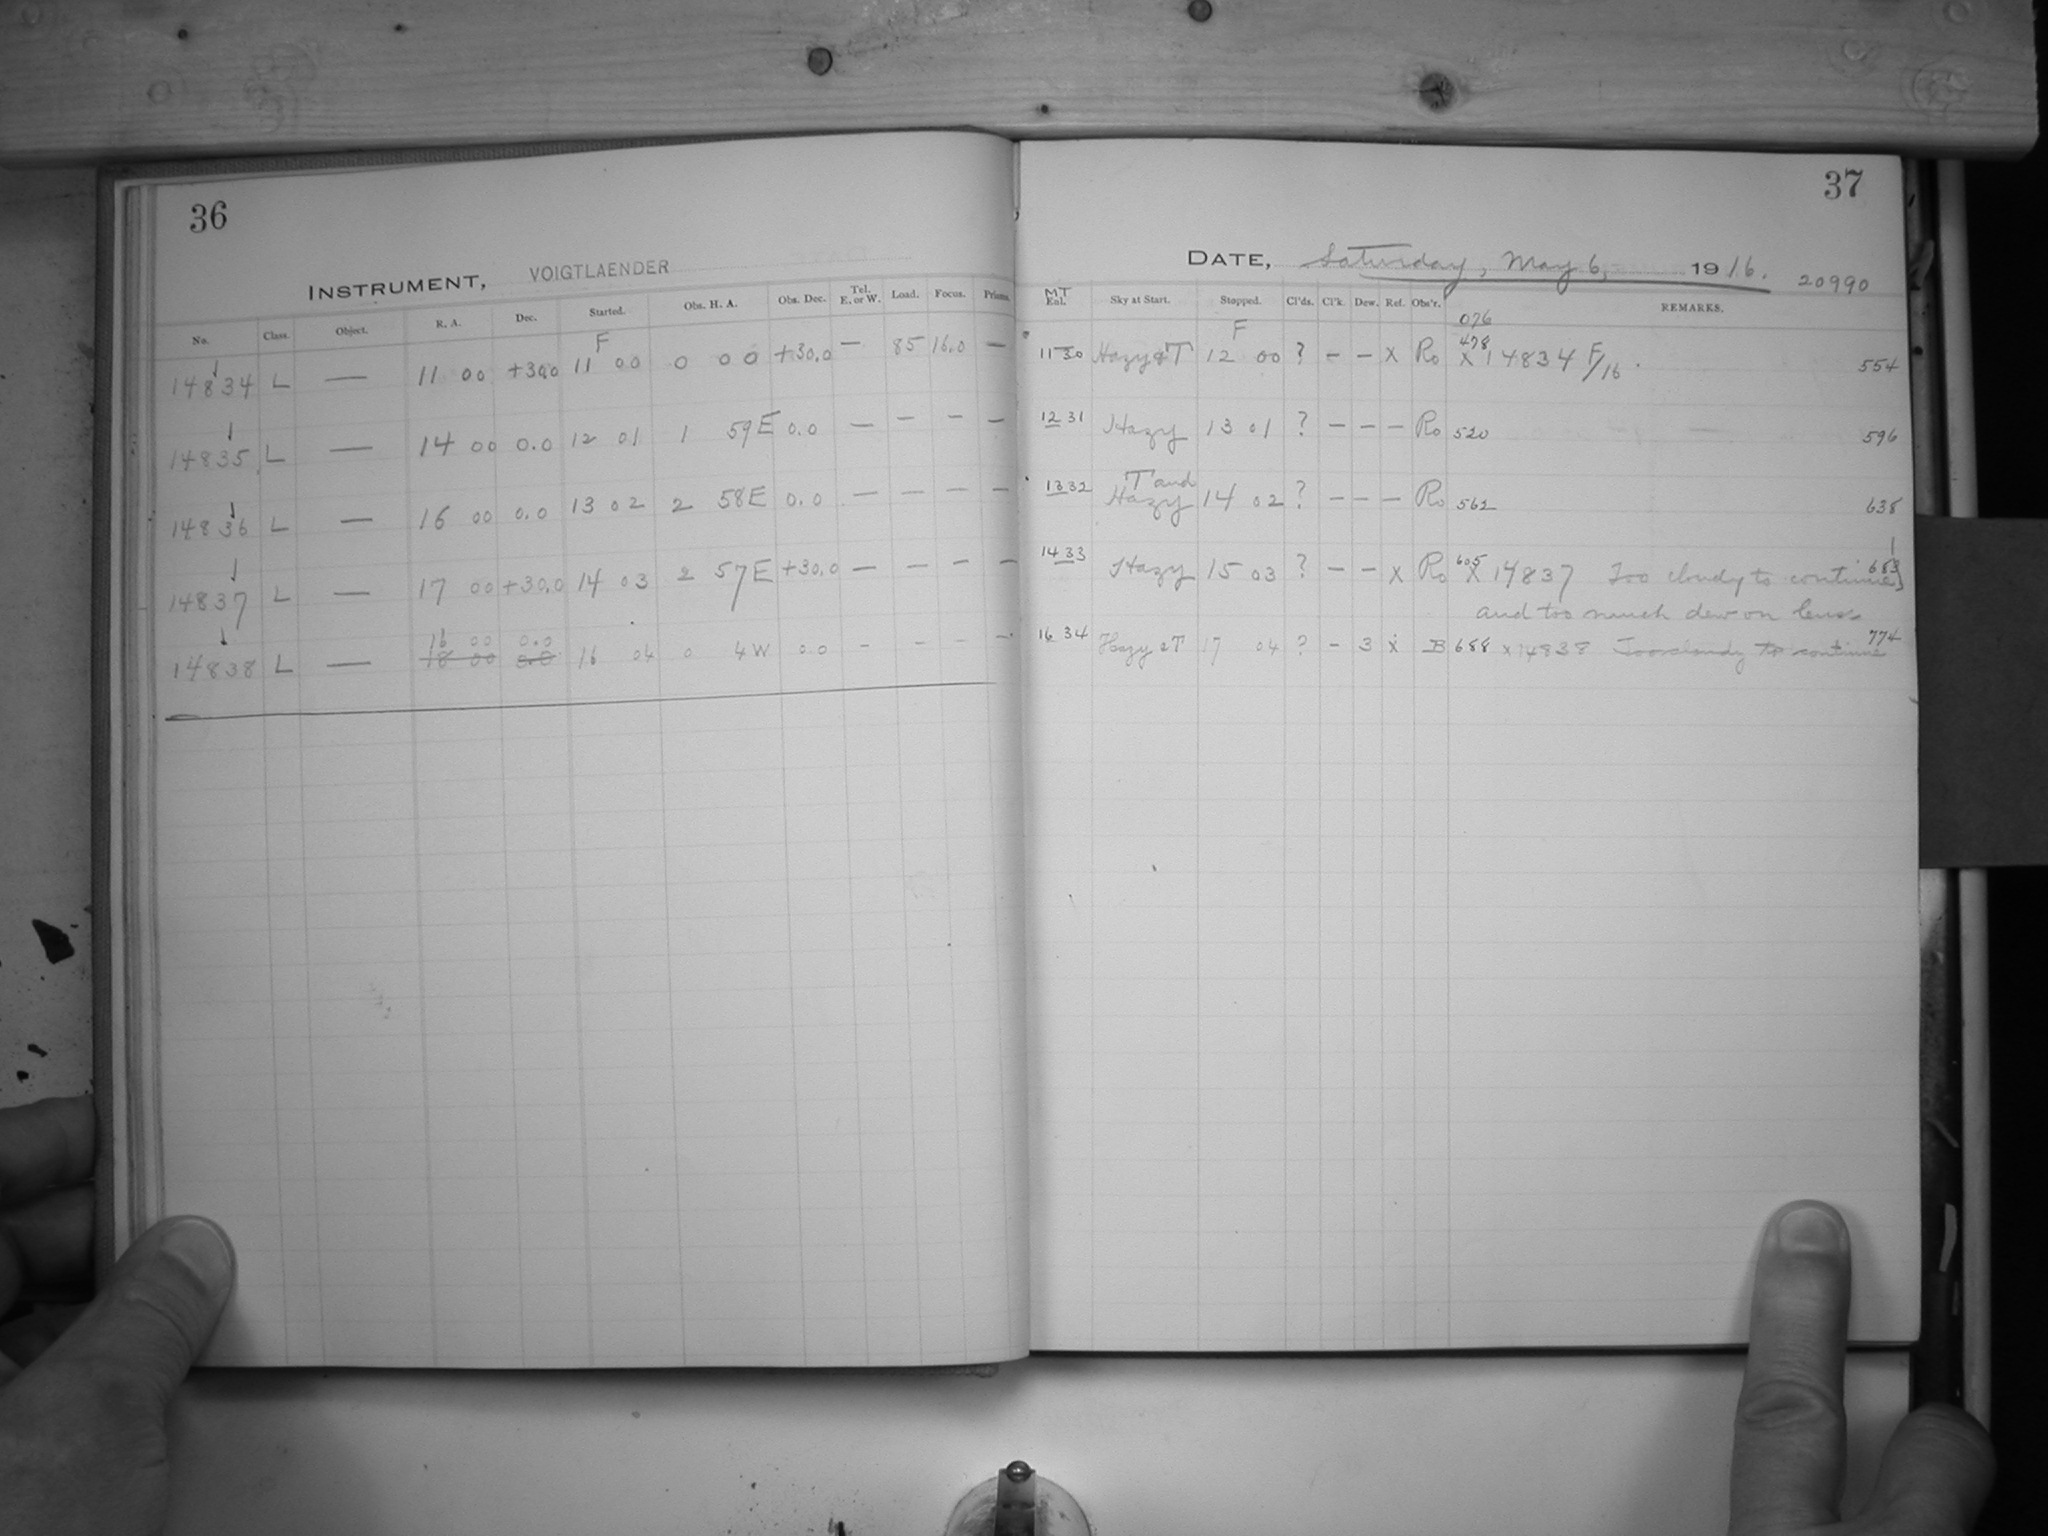 36
INSTRUMENT, VOIGTLAENDER
No. Class. Object. R. A. Dec. Started. Obs. H. A. Obs. Dec. Tel. E. or W. Load. Focus. Prisms.
F
14834 L — 11 00 +30.0 11 00 0 00 +30.0 — 85 16.0 —
14835 L — 14 00 0.0 12 01 1 59E 0.0 — — — —
14836 L — 16 00 0.0 13 02 2 58E 0.0 — — — —
14837 L — 17 00 +30.0 14 03 2 57E +30.0 — — — —
16 00 0.0
14838 L — 18 00 0.0 16 04 0 4W 0.0 – – – –
37
DATE, Saturday, May 6, 1916.
20990
MT
Eal. Sky at Start. Stopped. Cl'ds. Cl'k. Dew. Ref. Obs'r. REMARKS.
F 076
478
11 30 Hazy & T 12 00 ? – – x Ro x 14834 F/16 . 554
12 31 Hazy 13 01 ? – – – Ro 520 596
T and
13 32 Hazy 14 02 ? – – – Ro 562 638
14 33 Hazy 15 03 ? – – x Ro 605 x 14837 Too cloudy to continue 683
and too much dew on lens
16 34 Hazy & T 17 04 ? – 3 x B 688 x 14838 Too cloudy to continue 774